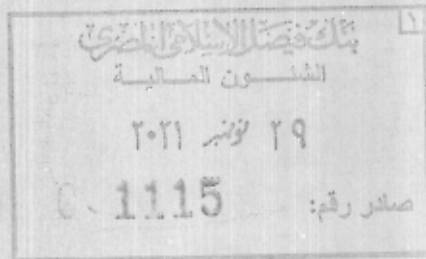 ١
بنك فيصل الإسلامي المصري
الشئون المالية
٢٩ نوفمبر ٢٠٢١
صادر رقم: 1115